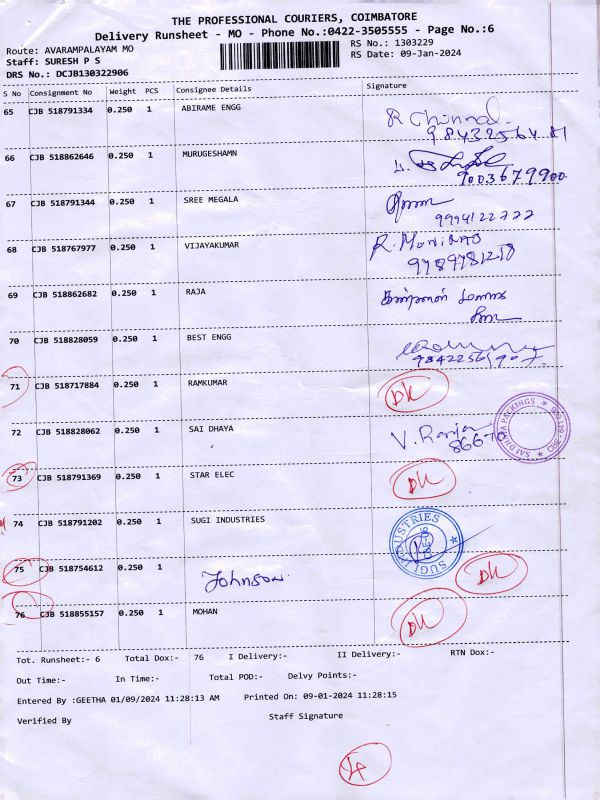 THE PROFESSIONAL COURIERS, COIMBATORE
Delivery Runsheet - MO - Phone No.:0422-3505555 - Page No.:6
Route: AVARAMPALAYAM MO RS No.: 1303229
Staff: SURESH P S RS Date: 09-Jan-2024
DRS No.: DCJB130322906
S No Consignment No Weight PCS Consignee Details Signature
65 CJB 518791334 0.250 1 ABIRAME ENGG
66 CJB 518862646 0.250 1 MURUGESHAMN
9003679900
67 CJB 518791344 0.250 1 SREE MEGALA
9994122777
68 CJB 518767977 0.250 1 VIJAYAKUMAR
9789781218
69 CJB 518862682 0.250 1 RAJA
70 CJB 518828059 0.250 1 BEST ENGG
9842256907
71 CJB 518717884 0.250 1 RAMKUMAR DK
72 CJB 518828062 0.250 1 SAI DHAYA V. Ranja
SAI DHAYA PACKINGS
73 CJB 518791369 0.250 1 STAR ELEC DK
74 CJB 518791202 0.250 1 SUGI INDUSTRIES
SUGI INDUSTRIES
75 CJB 518754612 0.250 1 Johnson DK
76 CJB 518855157 0.250 1 MOHAN DK
Tot. Runsheet:- 6 Total Dox:- 76 I Delivery:- II Delivery:- RTN Dox:-
Out Time:- In Time:- Total POD:- Delvy Points:-
Entered By :GEETHA 01/09/2024 11:28:13 AM Printed On: 09-01-2024 11:28:15
Verified By Staff Signature